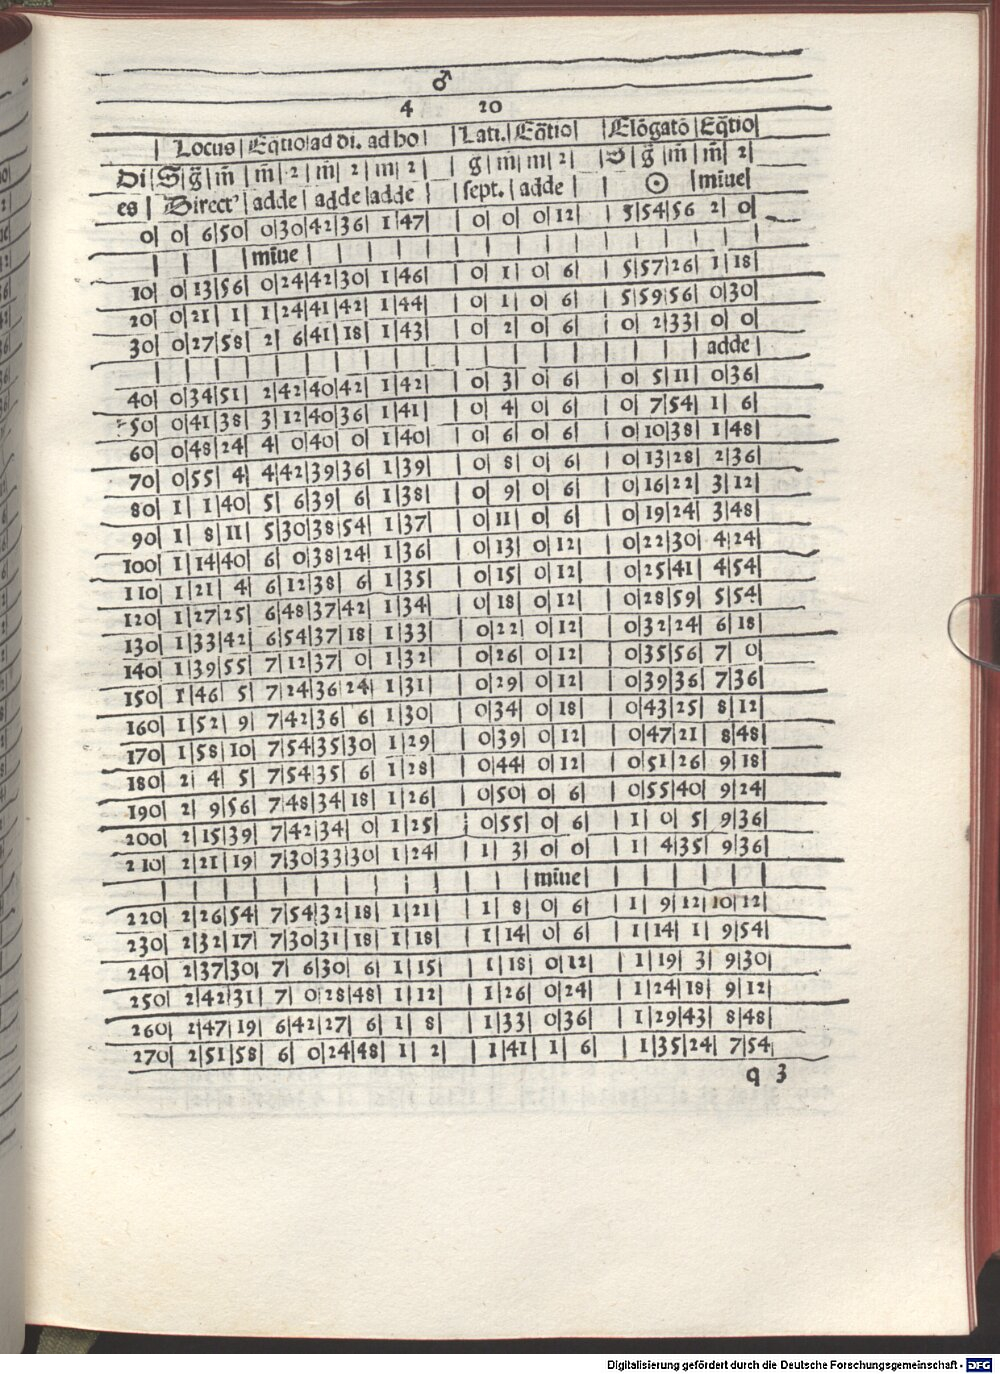 ♂
4 20
| Locus | Eq̃tio | ad di. | ad ho | | Lati. | Eq̃tio | | Elõgatõ | Eq̃tio |
Di | S | g̃ | m̃ | m̃ | 2 | m̃ | 2 | m | 2 | | g̃ | m̃ | m | 2 | | S | g̃ | m̃ | m̃ | 2 |
es | Direct' | adde | adde | adde | | sept. | adde | | ☉ | miñue |
0 | 0 | 6 | 50 | 0 | 30 | 42 | 36 | 1 | 47 | | 0 | 0 | 0 | 12 | | 5 | 54 | 56 | 2 | 0 |
miñue
10 | 0 | 13 | 56 | 0 | 24 | 42 | 30 | 1 | 46 | | 0 | 1 | 0 | 6 | | 5 | 57 | 26 | 1 | 18 |
20 | 0 | 21 | 1 | 1 | 24 | 41 | 42 | 1 | 44 | | 0 | 1 | 0 | 6 | | 5 | 59 | 56 | 0 | 30 |
30 | 0 | 27 | 58 | 2 | 6 | 41 | 18 | 1 | 43 | | 0 | 2 | 0 | 6 | | 0 | 2 | 33 | 0 | 0 |
adde
40 | 0 | 34 | 51 | 2 | 42 | 40 | 42 | 1 | 42 | | 0 | 3 | 0 | 6 | | 0 | 5 | 11 | 0 | 36 |
50 | 0 | 41 | 38 | 3 | 12 | 40 | 36 | 1 | 41 | | 0 | 4 | 0 | 6 | | 0 | 7 | 54 | 1 | 6 |
60 | 0 | 48 | 24 | 4 | 0 | 40 | 0 | 1 | 40 | | 0 | 6 | 0 | 6 | | 0 | 10 | 38 | 1 | 48 |
70 | 0 | 55 | 4 | 4 | 42 | 39 | 36 | 1 | 39 | | 0 | 8 | 0 | 6 | | 0 | 13 | 28 | 2 | 36 |
80 | 1 | 1 | 40 | 5 | 6 | 39 | 6 | 1 | 38 | | 0 | 9 | 0 | 6 | | 0 | 16 | 22 | 3 | 12 |
90 | 1 | 8 | 11 | 5 | 30 | 38 | 54 | 1 | 37 | | 0 | 11 | 0 | 6 | | 0 | 19 | 24 | 3 | 48 |
100 | 1 | 14 | 40 | 6 | 0 | 38 | 24 | 1 | 36 | | 0 | 13 | 0 | 12 | | 0 | 22 | 30 | 4 | 24 |
110 | 1 | 21 | 4 | 6 | 12 | 38 | 6 | 1 | 35 | | 0 | 15 | 0 | 12 | | 0 | 25 | 41 | 4 | 54 |
120 | 1 | 27 | 25 | 6 | 48 | 37 | 42 | 1 | 34 | | 0 | 18 | 0 | 12 | | 0 | 28 | 59 | 5 | 54 |
130 | 1 | 33 | 42 | 6 | 54 | 37 | 18 | 1 | 33 | | 0 | 22 | 0 | 12 | | 0 | 32 | 24 | 6 | 18 |
140 | 1 | 39 | 55 | 7 | 12 | 37 | 0 | 1 | 32 | | 0 | 26 | 0 | 12 | | 0 | 35 | 56 | 7 | 0 |
150 | 1 | 46 | 5 | 7 | 24 | 36 | 24 | 1 | 31 | | 0 | 29 | 0 | 12 | | 0 | 39 | 36 | 7 | 36 |
160 | 1 | 52 | 9 | 7 | 42 | 36 | 6 | 1 | 30 | | 0 | 34 | 0 | 18 | | 0 | 43 | 25 | 8 | 12 |
170 | 1 | 58 | 10 | 7 | 54 | 35 | 30 | 1 | 29 | | 0 | 39 | 0 | 12 | | 0 | 47 | 21 | 8 | 48 |
180 | 2 | 4 | 5 | 7 | 54 | 35 | 6 | 1 | 28 | | 0 | 44 | 0 | 12 | | 0 | 51 | 26 | 9 | 18 |
190 | 2 | 9 | 56 | 7 | 48 | 34 | 18 | 1 | 26 | | 0 | 50 | 0 | 6 | | 0 | 55 | 40 | 9 | 24 |
200 | 2 | 15 | 39 | 7 | 42 | 34 | 0 | 1 | 25 | | 0 | 55 | 0 | 6 | | 1 | 0 | 5 | 9 | 36 |
210 | 2 | 21 | 19 | 7 | 30 | 33 | 30 | 1 | 24 | | 1 | 3 | 0 | 0 | | 1 | 4 | 35 | 9 | 36 |
miñue
220 | 2 | 26 | 54 | 7 | 54 | 32 | 18 | 1 | 21 | | 1 | 8 | 0 | 6 | | 1 | 9 | 12 | 10 | 12 |
230 | 2 | 32 | 17 | 7 | 30 | 31 | 18 | 1 | 18 | | 1 | 14 | 0 | 6 | | 1 | 14 | 1 | 9 | 54 |
240 | 2 | 37 | 30 | 7 | 6 | 30 | 6 | 1 | 15 | | 1 | 18 | 0 | 12 | | 1 | 19 | 3 | 9 | 30 |
250 | 2 | 42 | 31 | 7 | 0 | 28 | 48 | 1 | 12 | | 1 | 26 | 0 | 24 | | 1 | 24 | 18 | 9 | 12 |
260 | 2 | 47 | 19 | 6 | 42 | 27 | 6 | 1 | 8 | | 1 | 33 | 0 | 36 | | 1 | 29 | 43 | 8 | 48 |
270 | 2 | 51 | 58 | 6 | 0 | 24 | 48 | 1 | 2 | | 1 | 41 | 1 | 6 | | 1 | 35 | 24 | 7 | 54 |
q 3
Digitalisierung gefördert durch die Deutsche Forschungsgemeinschaft - DFG